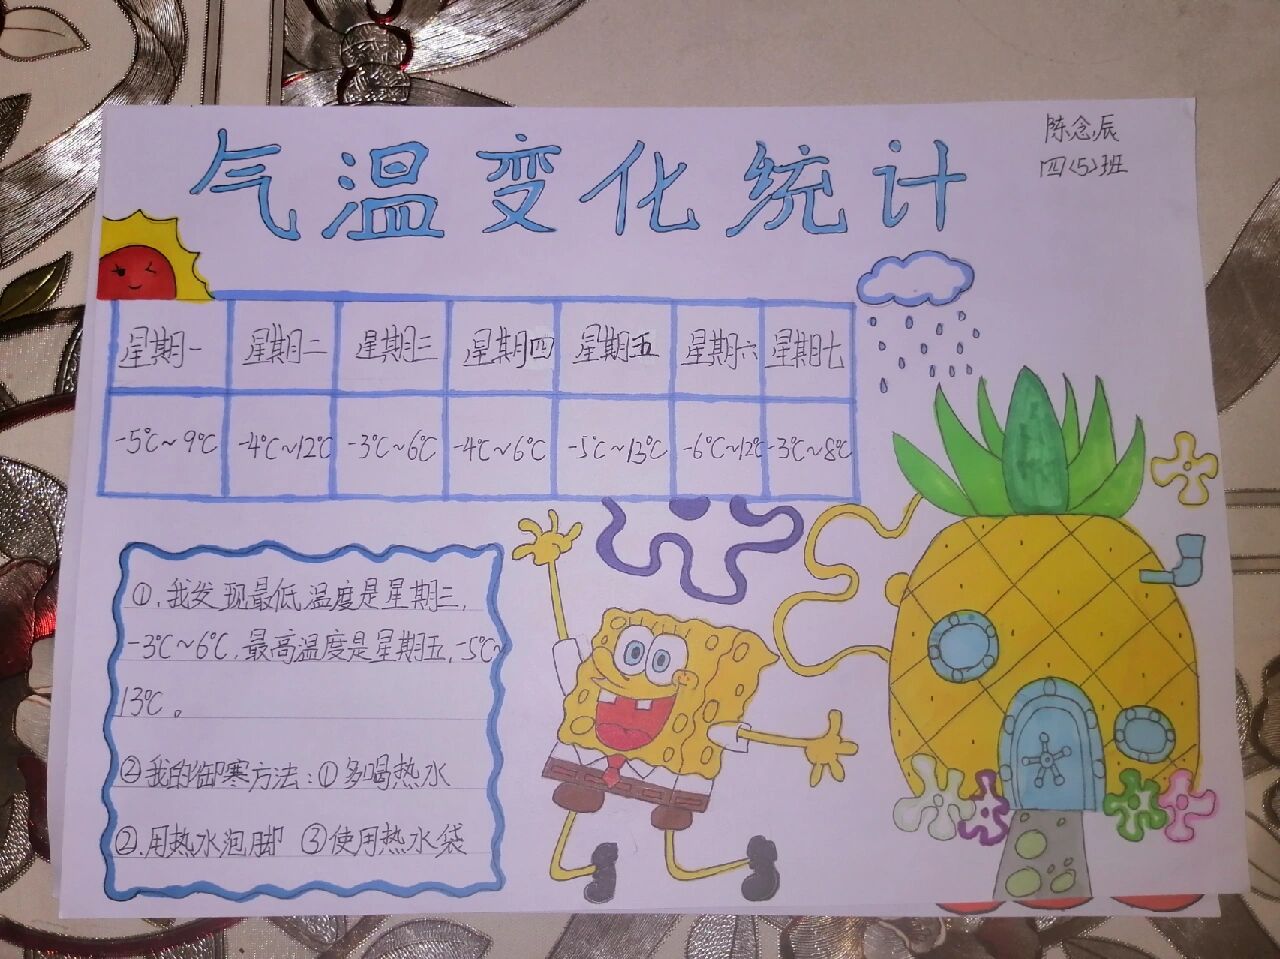 气温变化统计
陈念辰
四<5>班
星期一 星期二 星期三 星期四 星期五 星期六 星期七
-5℃~9℃ -4℃~12℃ -3℃~6℃ -4℃~6℃ -5℃~13℃ -6℃~12℃ -3℃~8℃
①.我发现最低温度是星期三,
-3℃~6℃,最高温度是星期五,-5℃~
13℃。
②我的御寒方法:①多喝热水
②.用热水泡脚 ③使用热水袋